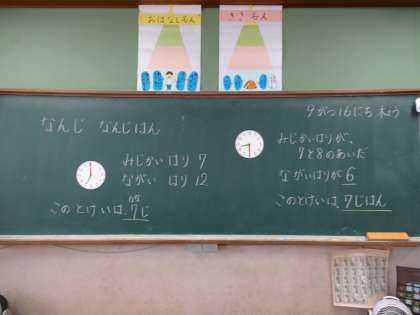 おはなしめん
ききめん
9がつ16にち 木よう
なんじ なんじはん
みじかいはりが、
7と8のあいだ
みじかい はり 7
ながい はり 12
ながいはりが 6
このとけいは、7じ
このとけいは、7じはん